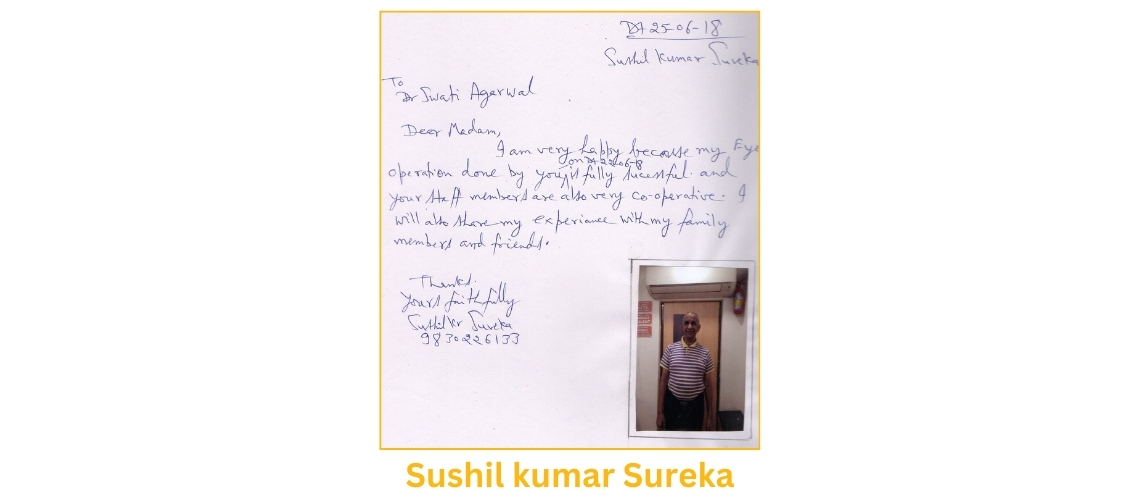 Dt 25-06-18
Sushil Kumar Sureka
To
Dr Swati Agarwal
Dear Madam,
I am very happy because my Eye
on Dt 22-06-18
operation done by you, is fully sucessful. and
your staff members are also very co-operative. I
will also share my experiance with my family
members and friends.
Thanks.
Yours faithfully
Sushil Kr Sureka
9830226133
Sushil kumar Sureka